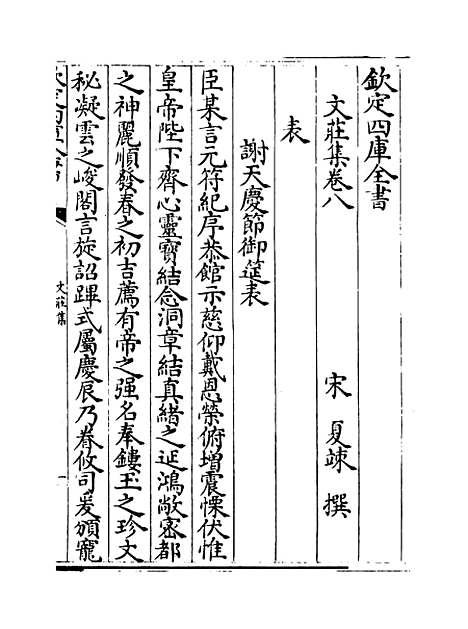 欽定四庫全書
文莊集卷八
宋 夏竦 撰
表
謝天慶節御筵表
臣某言元符紀序恭館示慈仰戴恩榮俯增震慄伏惟
皇帝陛下齊心靈寳結念洞章結真緒之延鴻敞宻都
之神麗順發春之初吉薦有帝之强名奉鏤玉之珍文
秘凝雲之峻閣言旋詔蹕式屬慶辰乃眷攸司爰頒寵
文莊集
一